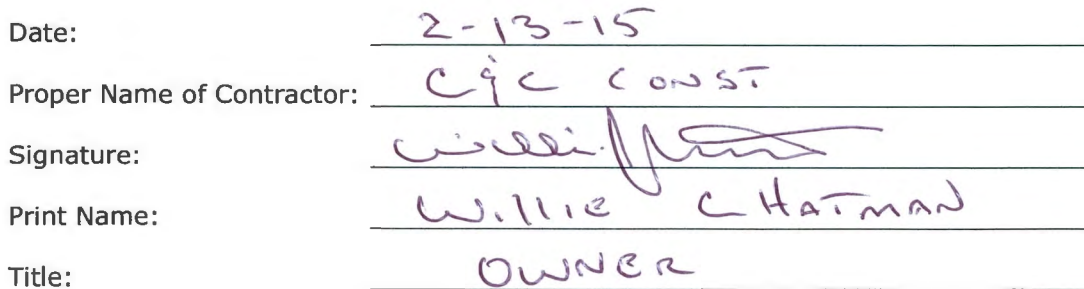 Date: 2-13-15
Proper Name of Contractor: C&C CONST
Signature:
Print Name: Willie CHATMAN
Title: OWNER